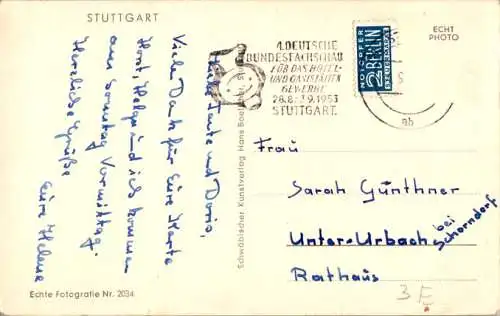 STUTTGART
Liebe Tante und Doris,
Viele Dank für Eure Karte
Horst, Helga und ich kommen
am Sonntag Vormittag.
Herzliche Grüße
Eure Helene
Echte Fotografie Nr. 2034
Schwäbischer Kunstverlag Hans Boettcher
1. DEUTSCHE
BUNDESFACHSCHAU
FÜR DAS HOTEL-
UND GASTSTÄTTEN
GEWERBE
28.8.-7.9.1953
STUTTGART.
NOTOPFER
2 BERLIN
STEUERMARKE
ECHT
PHOTO
ab
Frau
Sarah Günthner
Unter-Urbach bei Schorndorf
Rathaus
3 E